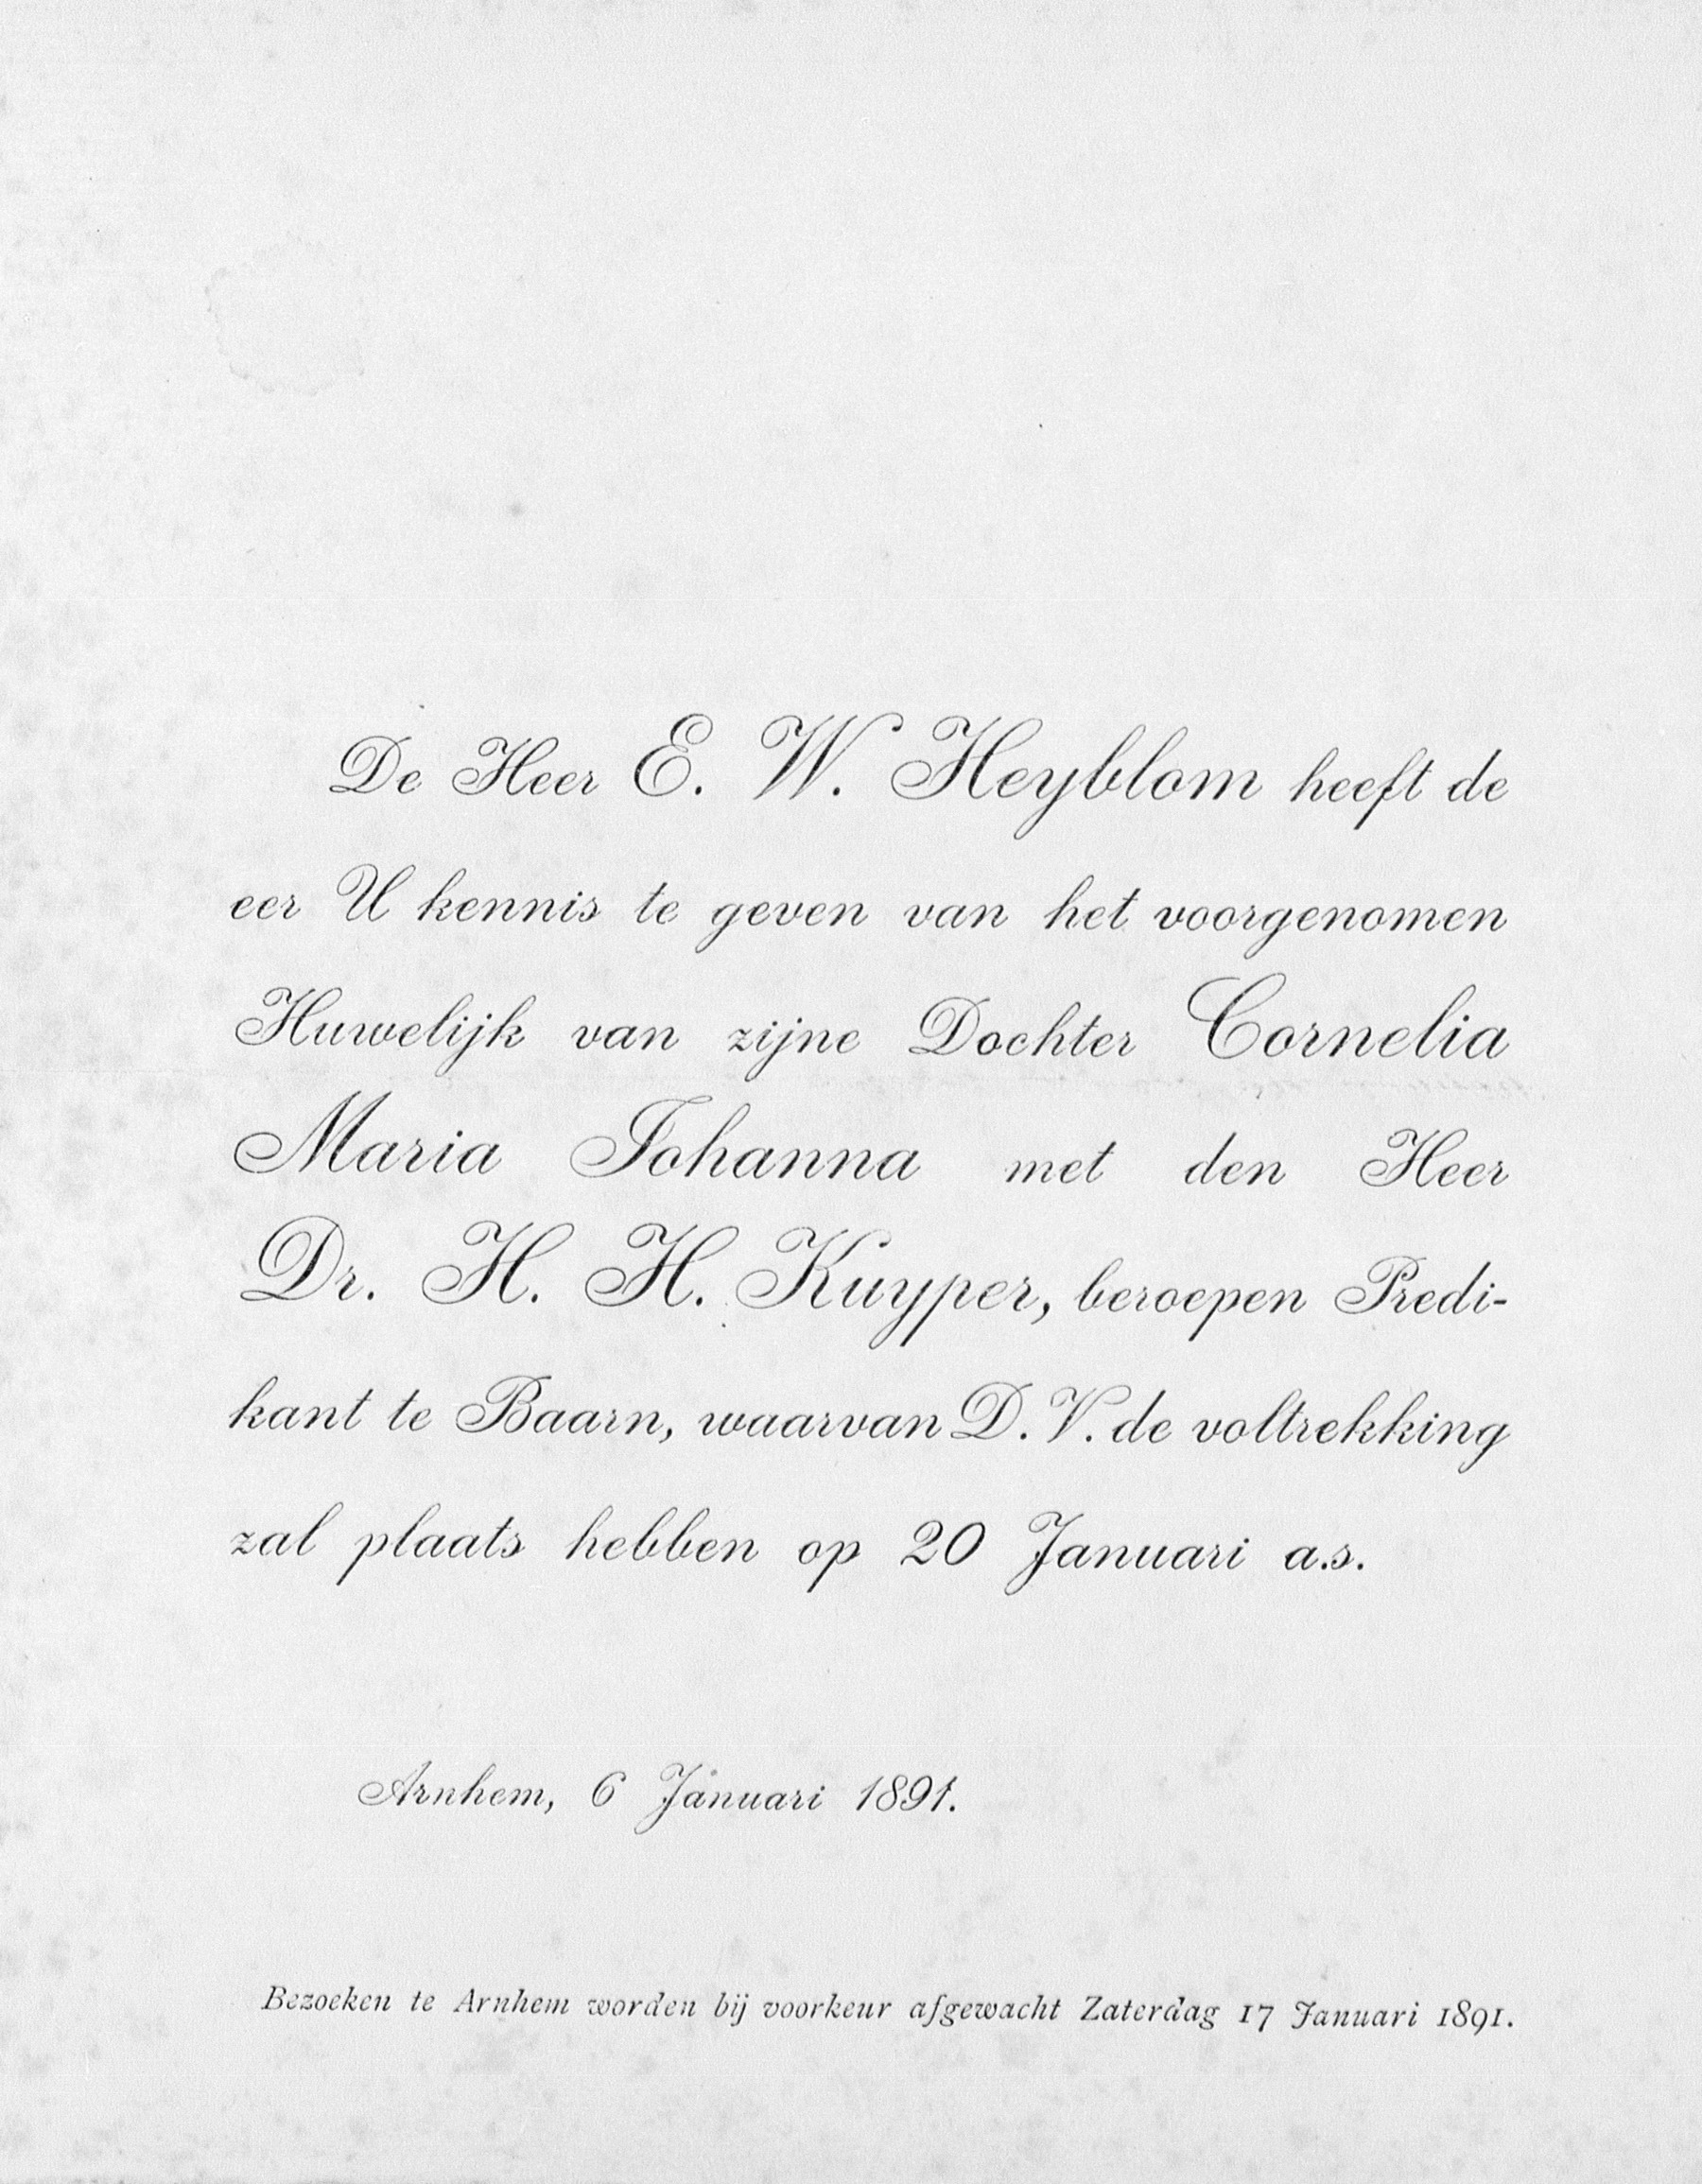 De Heer E. W. Heyblom heeft de
eer U kennis te geven van het voorgenomen
Huwelijk van zijne Dochter Cornelia
Maria Johanna met den Heer
Dr. H. H. Kuyper, beroepen Predi-
kant te Baarn, waarvan D. V. de voltrekking
zal plaats hebben op 20 Januari a.s.
Arnhem, 6 Januari 1891.
Bezoeken te Arnhem worden bij voorkeur afgewacht Zaterdag 17 Januari 1891.